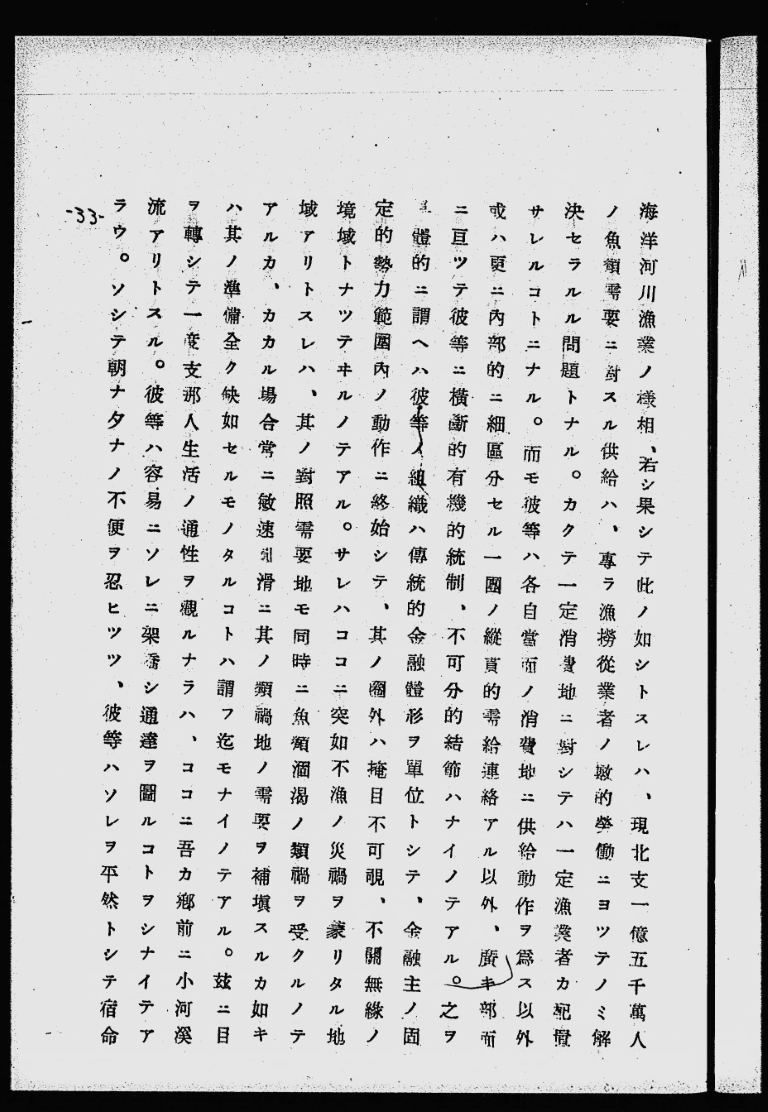 海洋河川漁業ノ樣相、若シ果シテ此ノ如シトスレハ、現北支一億五千萬人
ノ魚類需要ニ對スル供給ハ、專ラ漁撈從業者ノ數的勞働ニヨツテノミ解
決セラルル問題トナル。カクテ一定消費地ニ對シテハ一定漁業者カ配置
サレルコトニナル。而モ彼等ハ各自當面ノ消費地ニ供給動作ヲ爲ス以外
或ハ更ニ內部的ニ細區分セル一團ノ縱貫的需給連絡アル以外、廣キ部面
ニ亘ツテ彼等ニ橫斷的有機的統制、不可分的結節ハナイノテアル。之ヲ
具體的ニ謂ヘハ彼等ノ組織ハ傳統的金融體形ヲ單位トシテ、金融主ノ固
定的勢力範圍內ノ動作ニ終始シテ、其ノ圈外ハ掩目不可視、不關無緣ノ
境域トナツテヰルノテアル。サレハココニ突如不漁ノ災禍ヲ蒙リタル地
域アリトスレハ、其ノ對照需要地モ同時ニ魚類涸渴ノ類禍ヲ受クルノテ
アルカ、カカル場合常ニ敏速滑ニ其ノ類禍地ノ需要ヲ補塡スルカ如キ
ハ其ノ準備全ク缺如セルモノタルコトハ謂フ迄モナイノテアル。玆ニ目
ヲ轉シテ一度支那人生活ノ通性ヲ觀ルナラハ、ココニ吾カ鄕前ニ小河溪
流アリトスル。彼等ハ容易ニソレニ架橋シ通達ヲ圖ルコトヲシナイテア
ラウ。ソシテ朝ナ夕ナノ不便ヲ忍ヒツツ、彼等ハソレヲ平然トシテ宿命
-33-